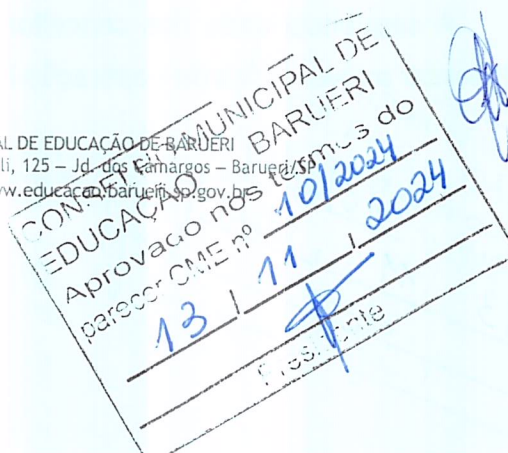 AL DE EDUCAÇÃO DE BARUERI
li, 125 – Jd. dos Camargos – Barueri/SP
w.educacao.barueri.sp.gov.br
CONSELHO MUNICIPAL DE
EDUCAÇÃO BARUERI
Aprovado nos termos do
parecer CME nº 10/2024
13 / 11 / 2024
Presidente